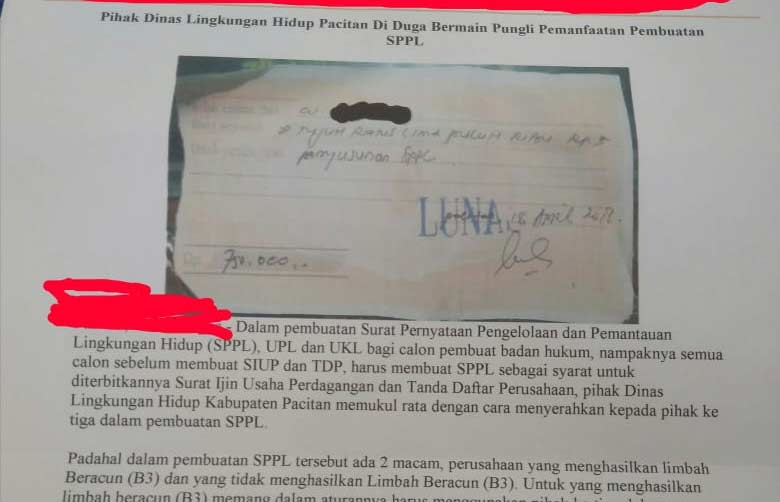 Pihak Dinas Lingkungan Hidup Pacitan Di Duga Bermain Pungli Pemanfaatan Pembuatan
SPPL
Tujuh Ratus Lima puluh Ribu Rp
penyusunan SPPL
LUNA
18 April
Rp 750.000..
- Dalam pembuatan Surat Pernyataan Pengelolaan dan Pemantauan
Lingkungan Hidup (SPPL), UPL dan UKL bagi calon pembuat badan hukum, nampaknya semua
calon sebelum membuat SIUP dan TDP, harus membuat SPPL sebagai syarat untuk
diterbitkannya Surat Ijin Usaha Perdagangan dan Tanda Daftar Perusahaan, pihak Dinas
Lingkungan Hidup Kabupaten Pacitan memukul rata dengan cara menyerahkan kepada pihak ke
tiga dalam pembuatan SPPL.
Padahal dalam pembuatan SPPL tersebut ada 2 macam, perusahaan yang menghasilkan limbah
Beracun (B3) dan yang tidak menghasilkan Limbah Beracun (B3). Untuk yang menghasilkan
limbah beracun (B3) memang dalam aturannya harus menggunakan pihak ke tiga dalam